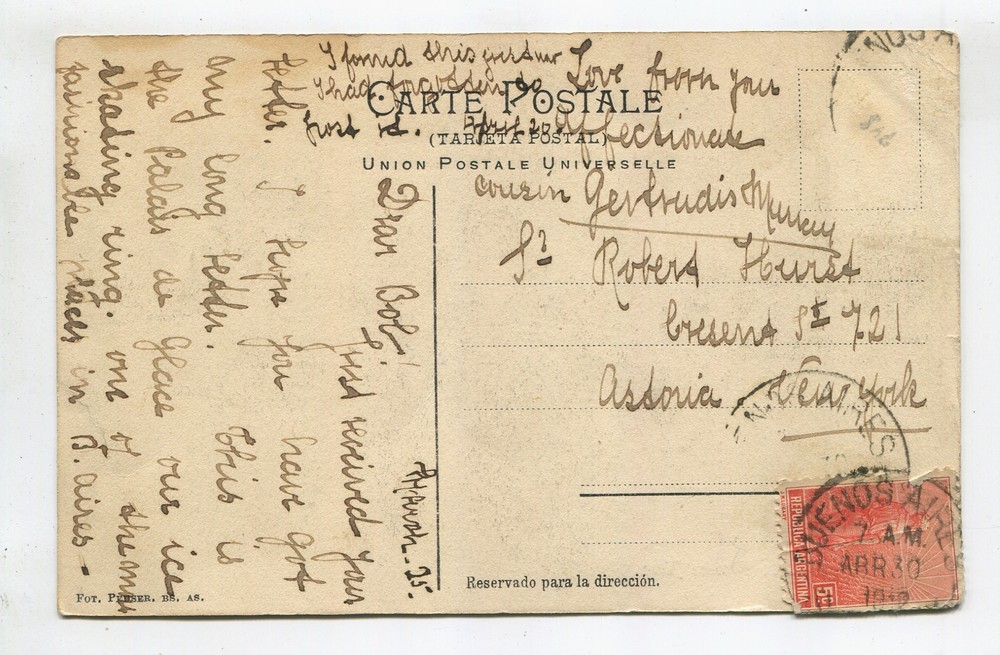 I found this yesterday
I had forgotten to
post it. April 30
Love from your
Affectionate
cousin Gertrudis Murray
CARTE POSTALE
(TARJETA POSTAL)
UNION POSTALE UNIVERSELLE
Sr Robert Hurst
Cresent St 721
Astoria. New York
Reservado para la dirección.
March - 25.
Dear Bob.
Just received your
letter. I hope you have got
my long letter. This is
the Palais de Glace our ice
skating ring. one of the most
fasionable places in B. Aires -
FOT. PEUSER. BS. AS.
BUENOS AIRES
7 A.M.
ABR 30
REPUBLICA ARGENTINA
5c